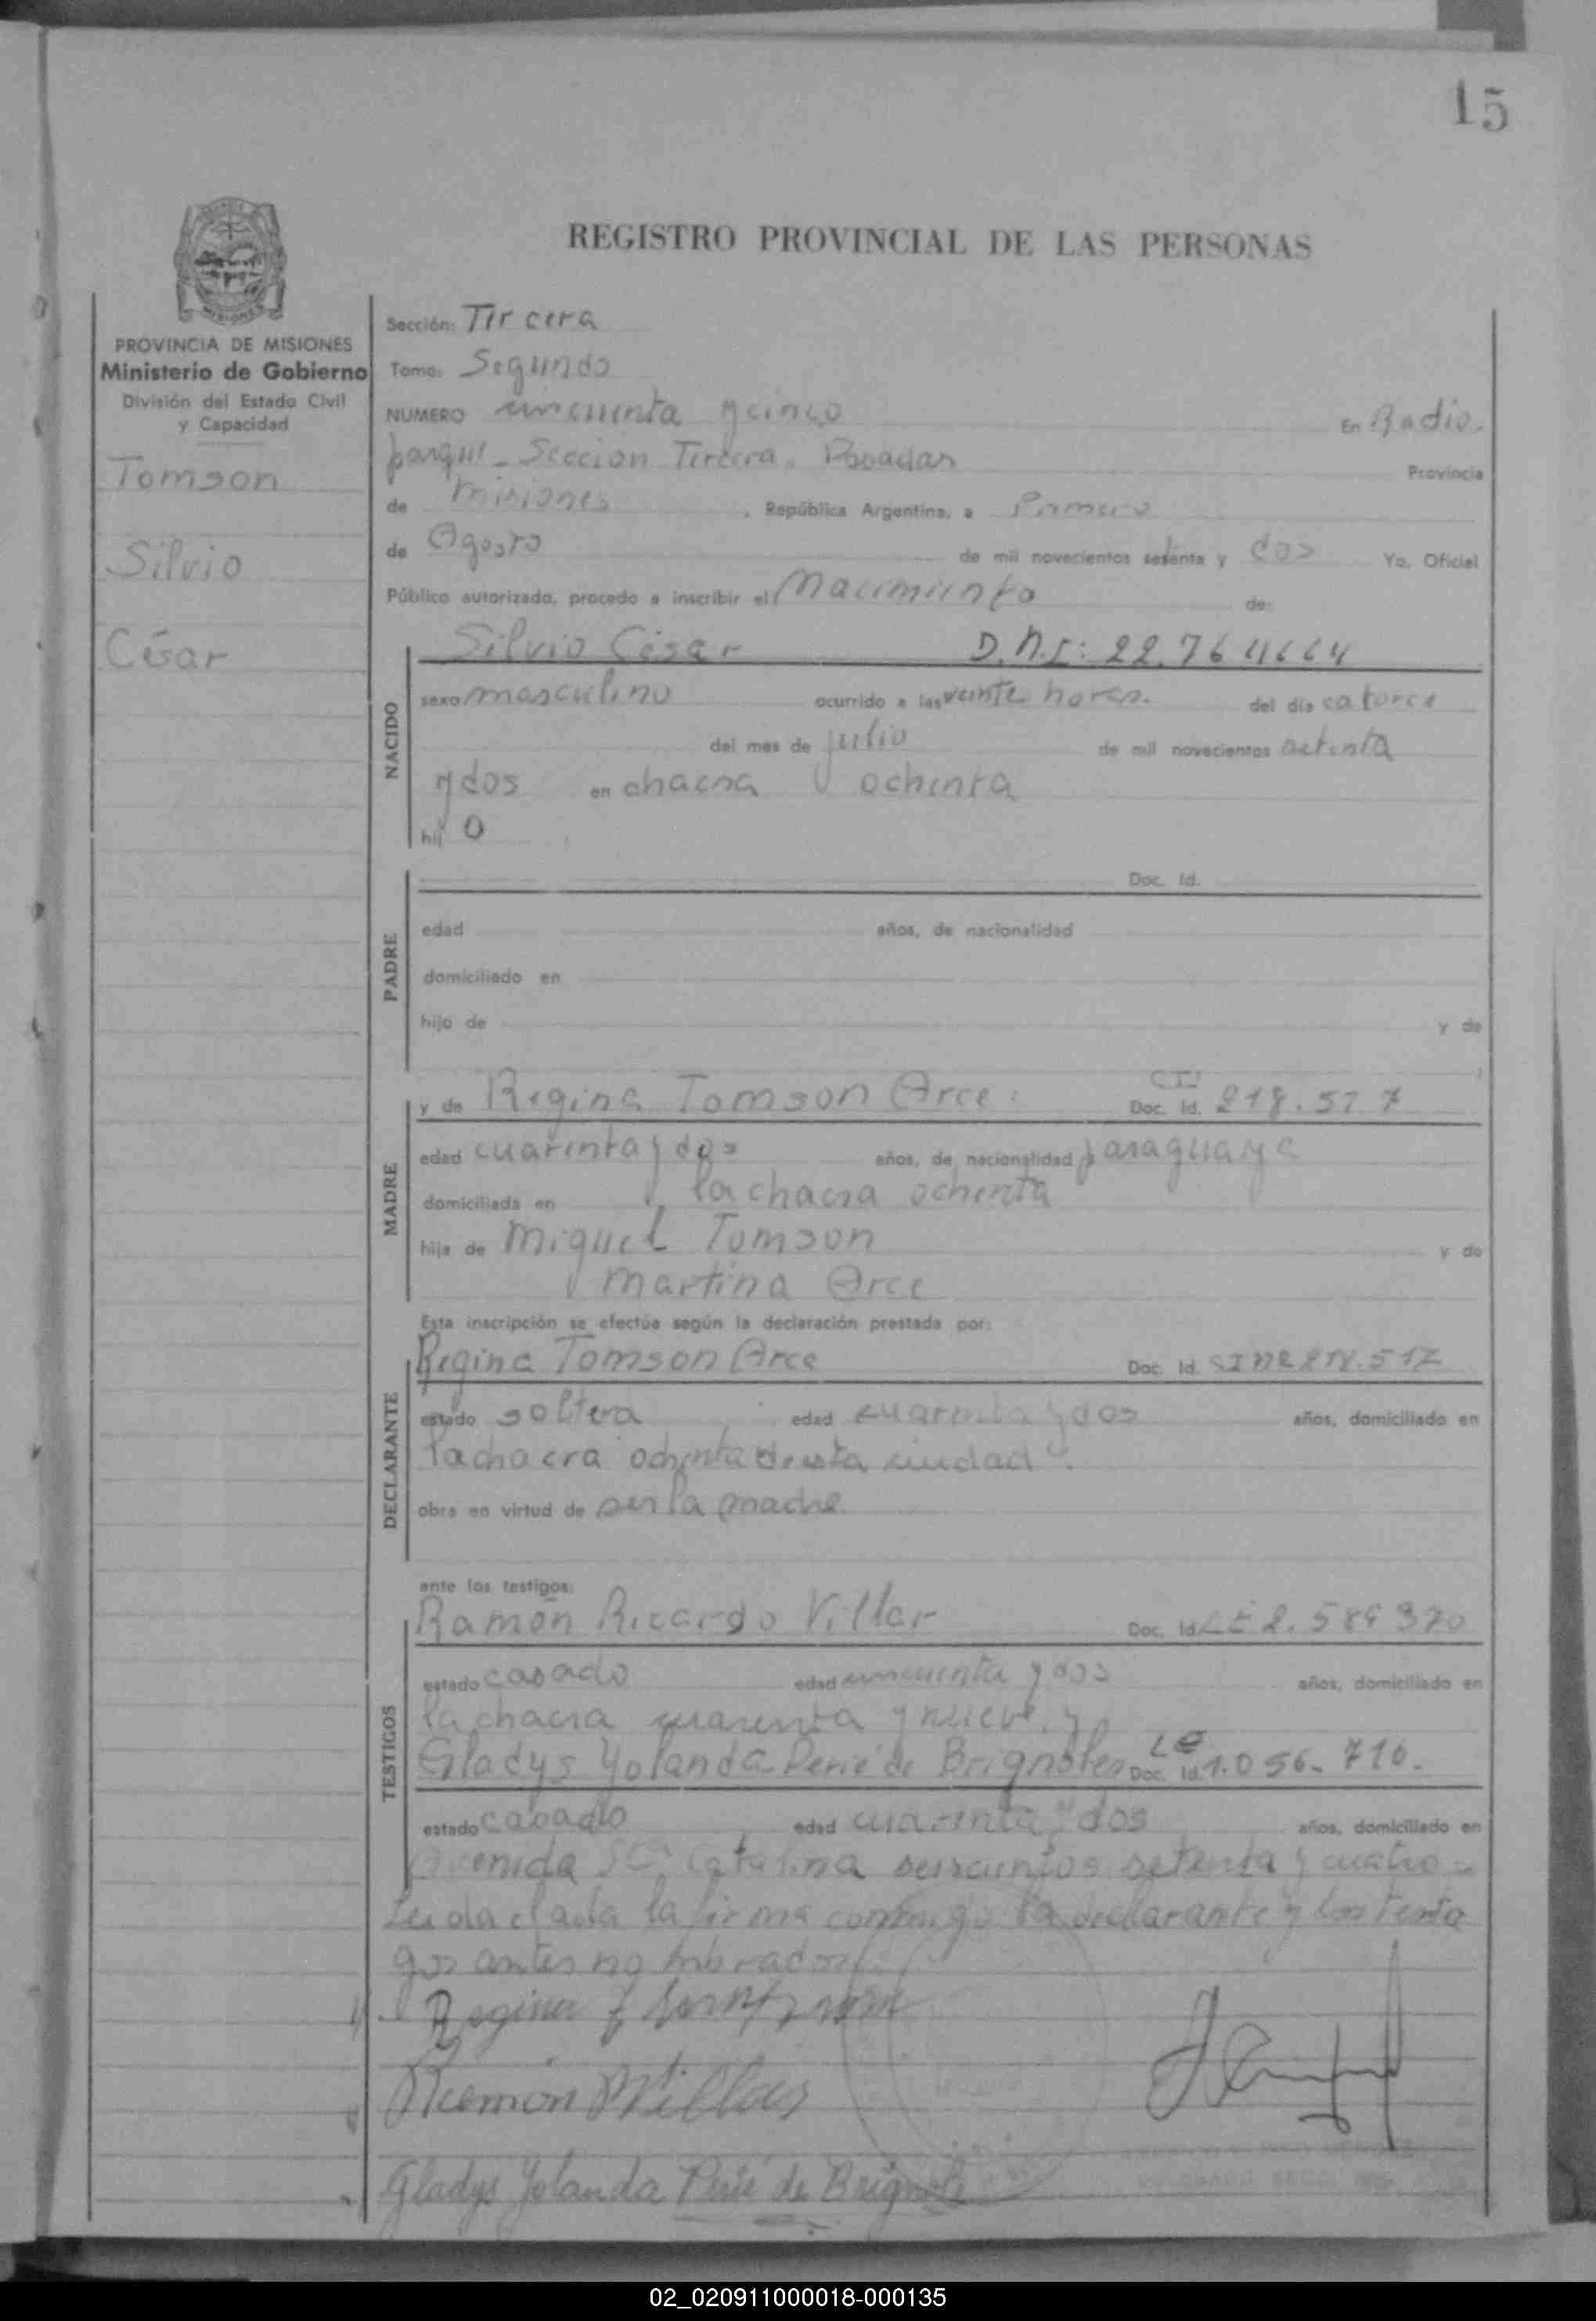 15
REGISTRO PROVINCIAL DE LAS PERSONAS
PROVINCIA DE MISIONES
Ministerio de Gobierno
División del Estado Civil
y Capacidad
Tomson
Silvio
César
Sección: Tercera
Tomo: Segundo
NUMERO cincuenta y cinco En Radio
parque - Sección Tercera. Posadas Provincia
de Misiones, República Argentina, a Primero
de Agosto de mil novecientos setenta y dos Yo, Oficial
Público autorizado, procedo a inscribir el Nacimiento de:
NACIDO
Silvio César D.N.I: 22.764664
sexo masculino ocurrido a las veinte horas. del día catorce
del mes de julio de mil novecientos setenta
y dos en chacra ochenta
hij o
PADRE
Doc. Id.
edad años, de nacionalidad
domiciliado en
hijo de y de
MADRE
y de Regina Tomson Arce. CI Doc. Id. 218.517
edad cuarenta y dos años, de nacionalidad paraguaya
domiciliada en la chacra ochenta
hija de Miguel Tomson y de
Martina Arce
Esta inscripción se efectúa según la declaración prestada por:
DECLARANTE
Regina Tomson Arce Doc. Id. 218.517
estado soltera edad cuarenta y dos años, domiciliado en
la chacra ochenta de esta ciudad.
obra en virtud de ser la madre.
ante los testigos:
TESTIGOS
Ramón Ricardo Villar Doc. Id. LE 2.589370
estado casado edad cincuenta y dos años, domiciliado en
la chacra cuarenta y nueve. y
Gladys Yolanda Perié de Brignoles LE Doc. Id. 1.056.710.
estado casado edad cuarenta y dos años, domiciliado en
avenida Sta Catalina seiscientos setenta y cuatro -
Leida el acta la firma conmigo la declarante y los testi
gos antes nombrados
Regina
Ramón Villar
Gladys Yolanda Perié de Brignole
02_020911000018-000135